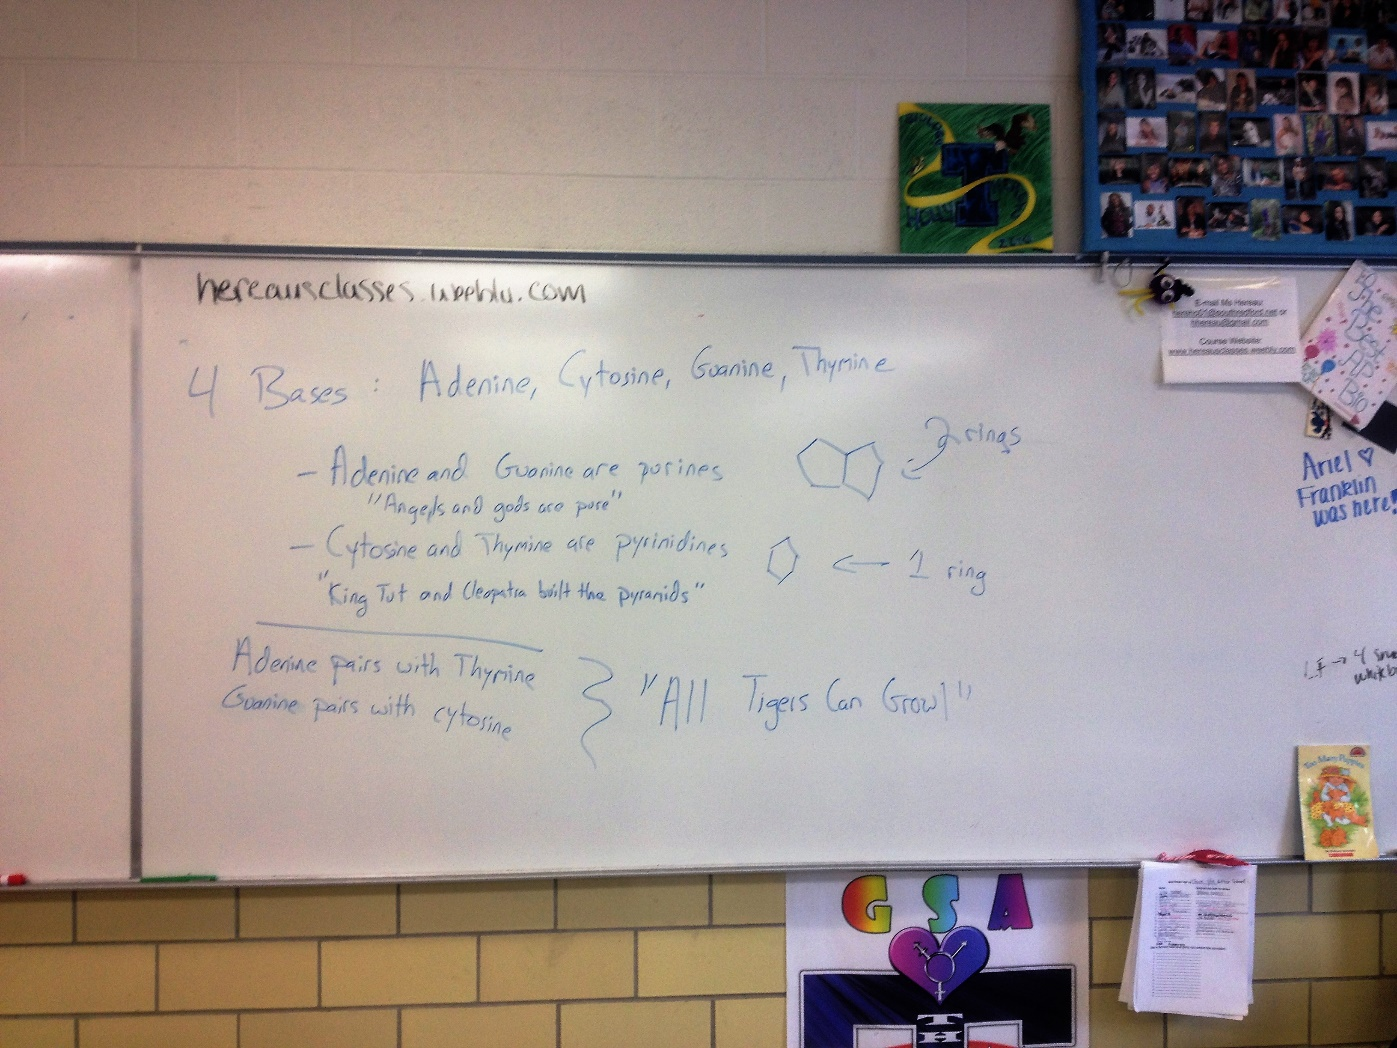 hereausclasses.weebly.com
4 Bases: Adenine, Cytosine, Guanine, Thymine
- Adenine and Guanine are purines
2 rings
"Angels and gods are pure"
- Cytosine and Thymine are pyrinidines
1 ring
"King Tut and Cleopatra built the pyramids"
Adenine pairs with Thymine
Guanine pairs with cytosine
"All Tigers Can Growl"
E-mail Ms Hereau:
or
Course Website:
www.hereausclasses.weebly.com
Best
Bio
Ariel ♡
Franklin
was here!
Too Many Puppies
GSA